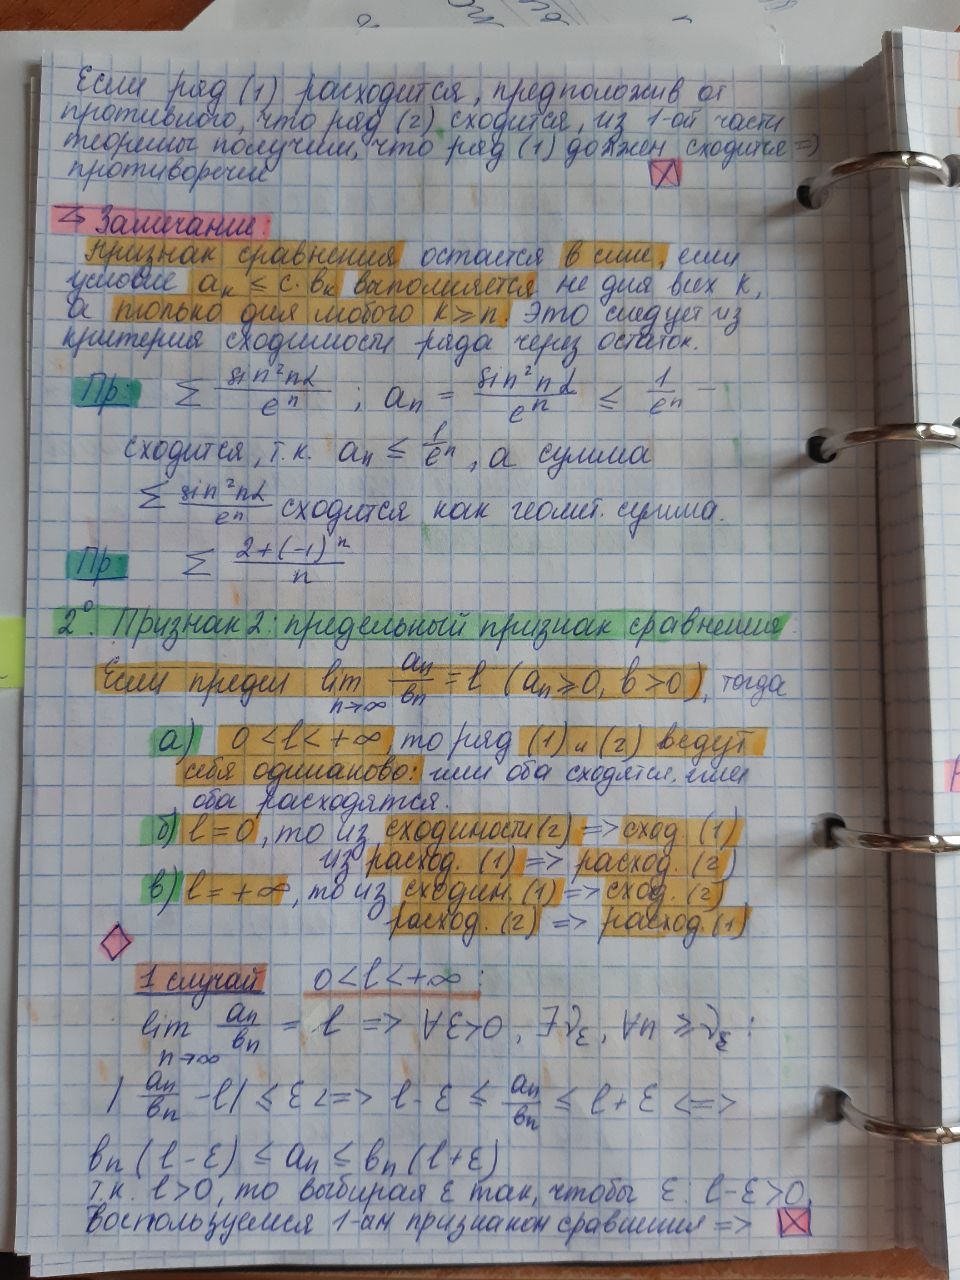 Если ряд (1) расходится, предположив от
противного, что ряд (2) сходится, из 1-ой части
теоремы получим, что ряд (1) должен сходится =>
противоречие
Замечание:
Признак сравнения остается в силе, если
условие aₖ ≤ c·bₖ выполняется не для всех k,
а только для любого k ≥ n. Это следует из
критерия сходимости ряда через остаток.
Пр: ∑ sin²nα / eⁿ ; aₙ = sin²nα / eⁿ ≤ 1/eⁿ –
сходится, т.к. aₙ ≤ 1/eⁿ, а сумма
∑ sin²nα / eⁿ сходится как геомет. сумма.
Пр: ∑ 2+(-1)ⁿ / n
2⁰. Признак 2: предельный признак сравнения
Если предел lim n→∞ aₙ/bₙ = l (aₙ ≥ 0, b > 0), тогда
а) 0 < l < +∞, то ряд (1) и (2) ведут
себя одинаково: или оба сходятся, или
оба расходятся.
б) l = 0, то из сходимости (2) => сход. (1)
из расход. (1) => расход. (2)
в) l = +∞, то из сходим. (1) => сход. (2)
расход. (2) => расход. (1)
1 случай 0 < l < +∞ :
lim n→∞ aₙ/bₙ = l => ∀ε>0, ∃n_ε, ∀n ≥ n_ε :
| aₙ/bₙ - l | ≤ ε <=> l - ε ≤ aₙ/bₙ ≤ l + ε <=>
bₙ (l - ε) ≤ aₙ ≤ bₙ (l + ε)
т.к. l > 0, то выбирая ε так, чтобы ε: l - ε > 0,
воспользуемся 1-ым признаком сравнения =>